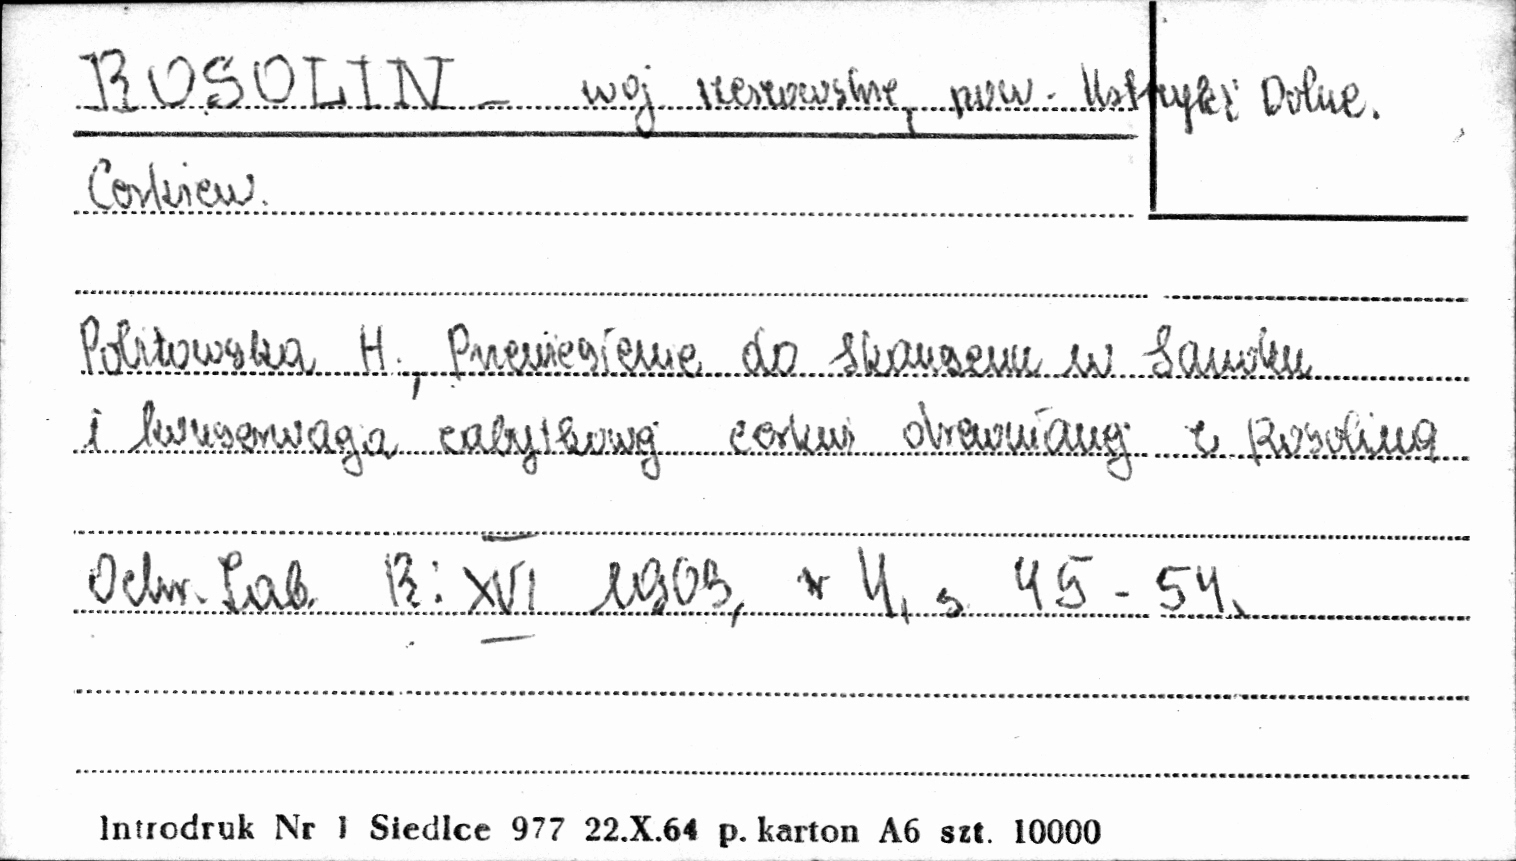 ROSOLIN - woj rzeszowskie, pow. Ustrzyki Dolne.
Cerkiew.
Politowska H., Przeniesienie do skansenu w Sanoku
i konserwacja zabytkowej cerkwi drewnianej z Rosolina
Ochr. Zab. R: XVI 1963, nr 4, s. 45-54.
Introdruk Nr 1 Siedlce 977 22.X.64 p. karton A6 szt. 10000